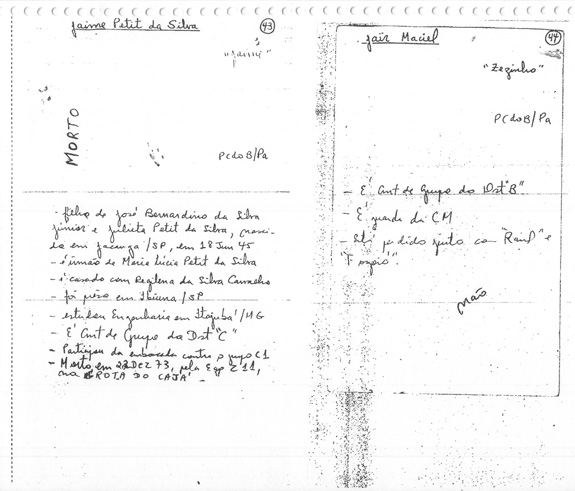 Jaime Petit da Silva
43
"Jaime"
MORTO
PCdoB/Pa
- filho de José Bernardino da Silva
Júnior e Julieta Petit da Silva, nasci-
do em Iacanga/SP, em 18 Jun 45
- é irmão de Maria Lúcia Petit da Silva
- é casado com Regilena da Silva Carvalho
- foi preso em Ibiuna/SP
- estudou Engenharia em Itajubá/MG
- É Cmt de Grupo da Dst "C"
- Participou da emboscada contra o grupo C1
- Morto, em 22 DEZ 73, pela Eqp Z 11,
na GROTA DO CAJÁ
Jair Maciel
44
"Zezinho"
PCdoB/Pa
- É Cmt de Grupo do Dst "B"
- É guarda da CM
- Está perdido junto com "Raul" e
não